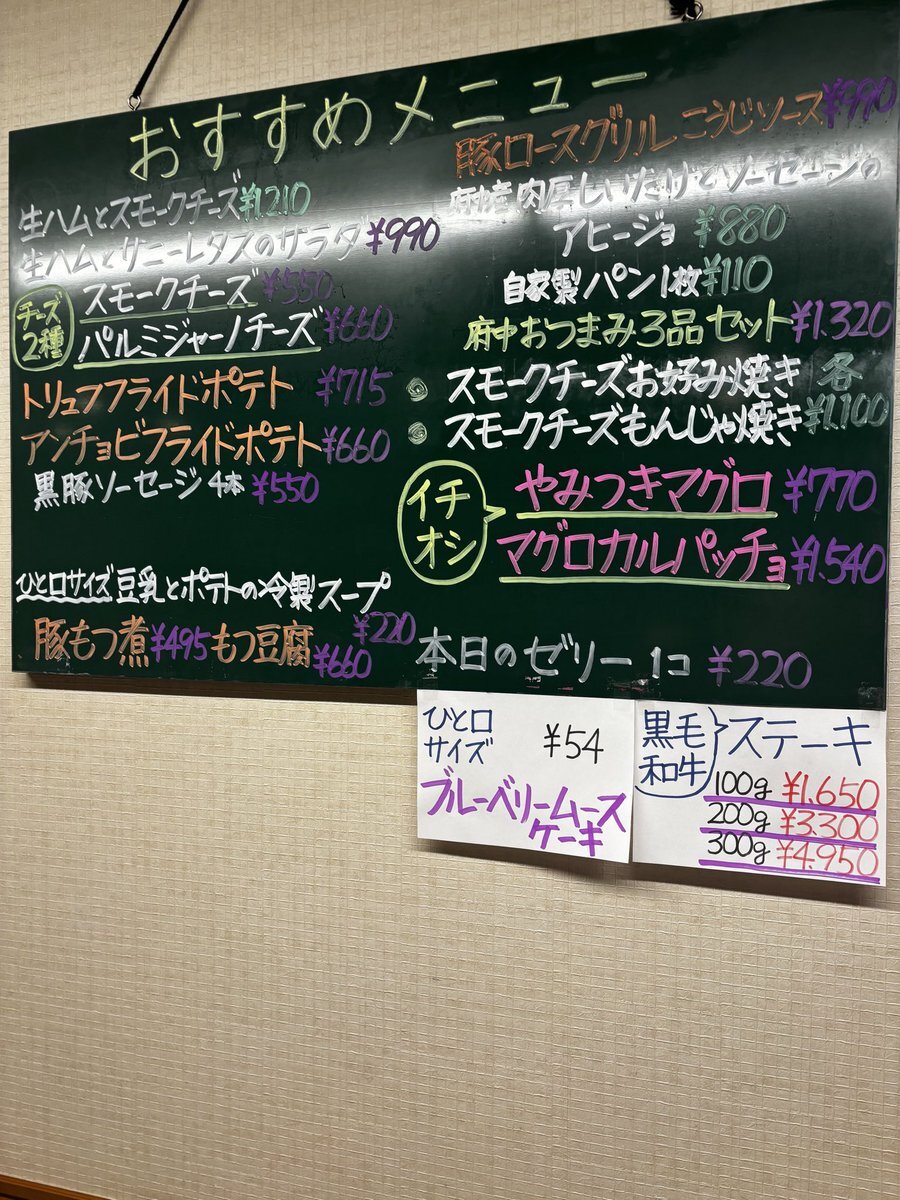 おすすめメニュー
生ハムとスモークチーズ ¥1.210
生ハムとサニーレタスのサラダ ¥990
チーズ2種
スモークチーズ ¥550
パルミジャーノチーズ ¥660
トリュフフライドポテト ¥715
アンチョビフライドポテト ¥660
黒豚ソーセージ4本 ¥550
ひと口サイズ 豆乳とポテトの冷製スープ
¥220
豚もつ煮 ¥495 もつ豆腐 ¥660
豚ロースグリルこうじソース ¥990
府中産肉厚しいたけとソーセージの
アヒージョ ¥880
自家製パン1枚 ¥110
府中おつまみ3品セット ¥1.320
スモークチーズお好み焼き 各
スモークチーズもんじゃ焼き ¥1.100
イチオシ
やみつきマグロ ¥770
マグロカルパッチョ ¥1.540
本日のゼリー 1コ ¥220
ひと口
サイズ ¥54
ブルーベリームース
ケーキ
黒毛和牛 ステーキ
100g ¥1.650
200g ¥3.300
300g ¥4.950